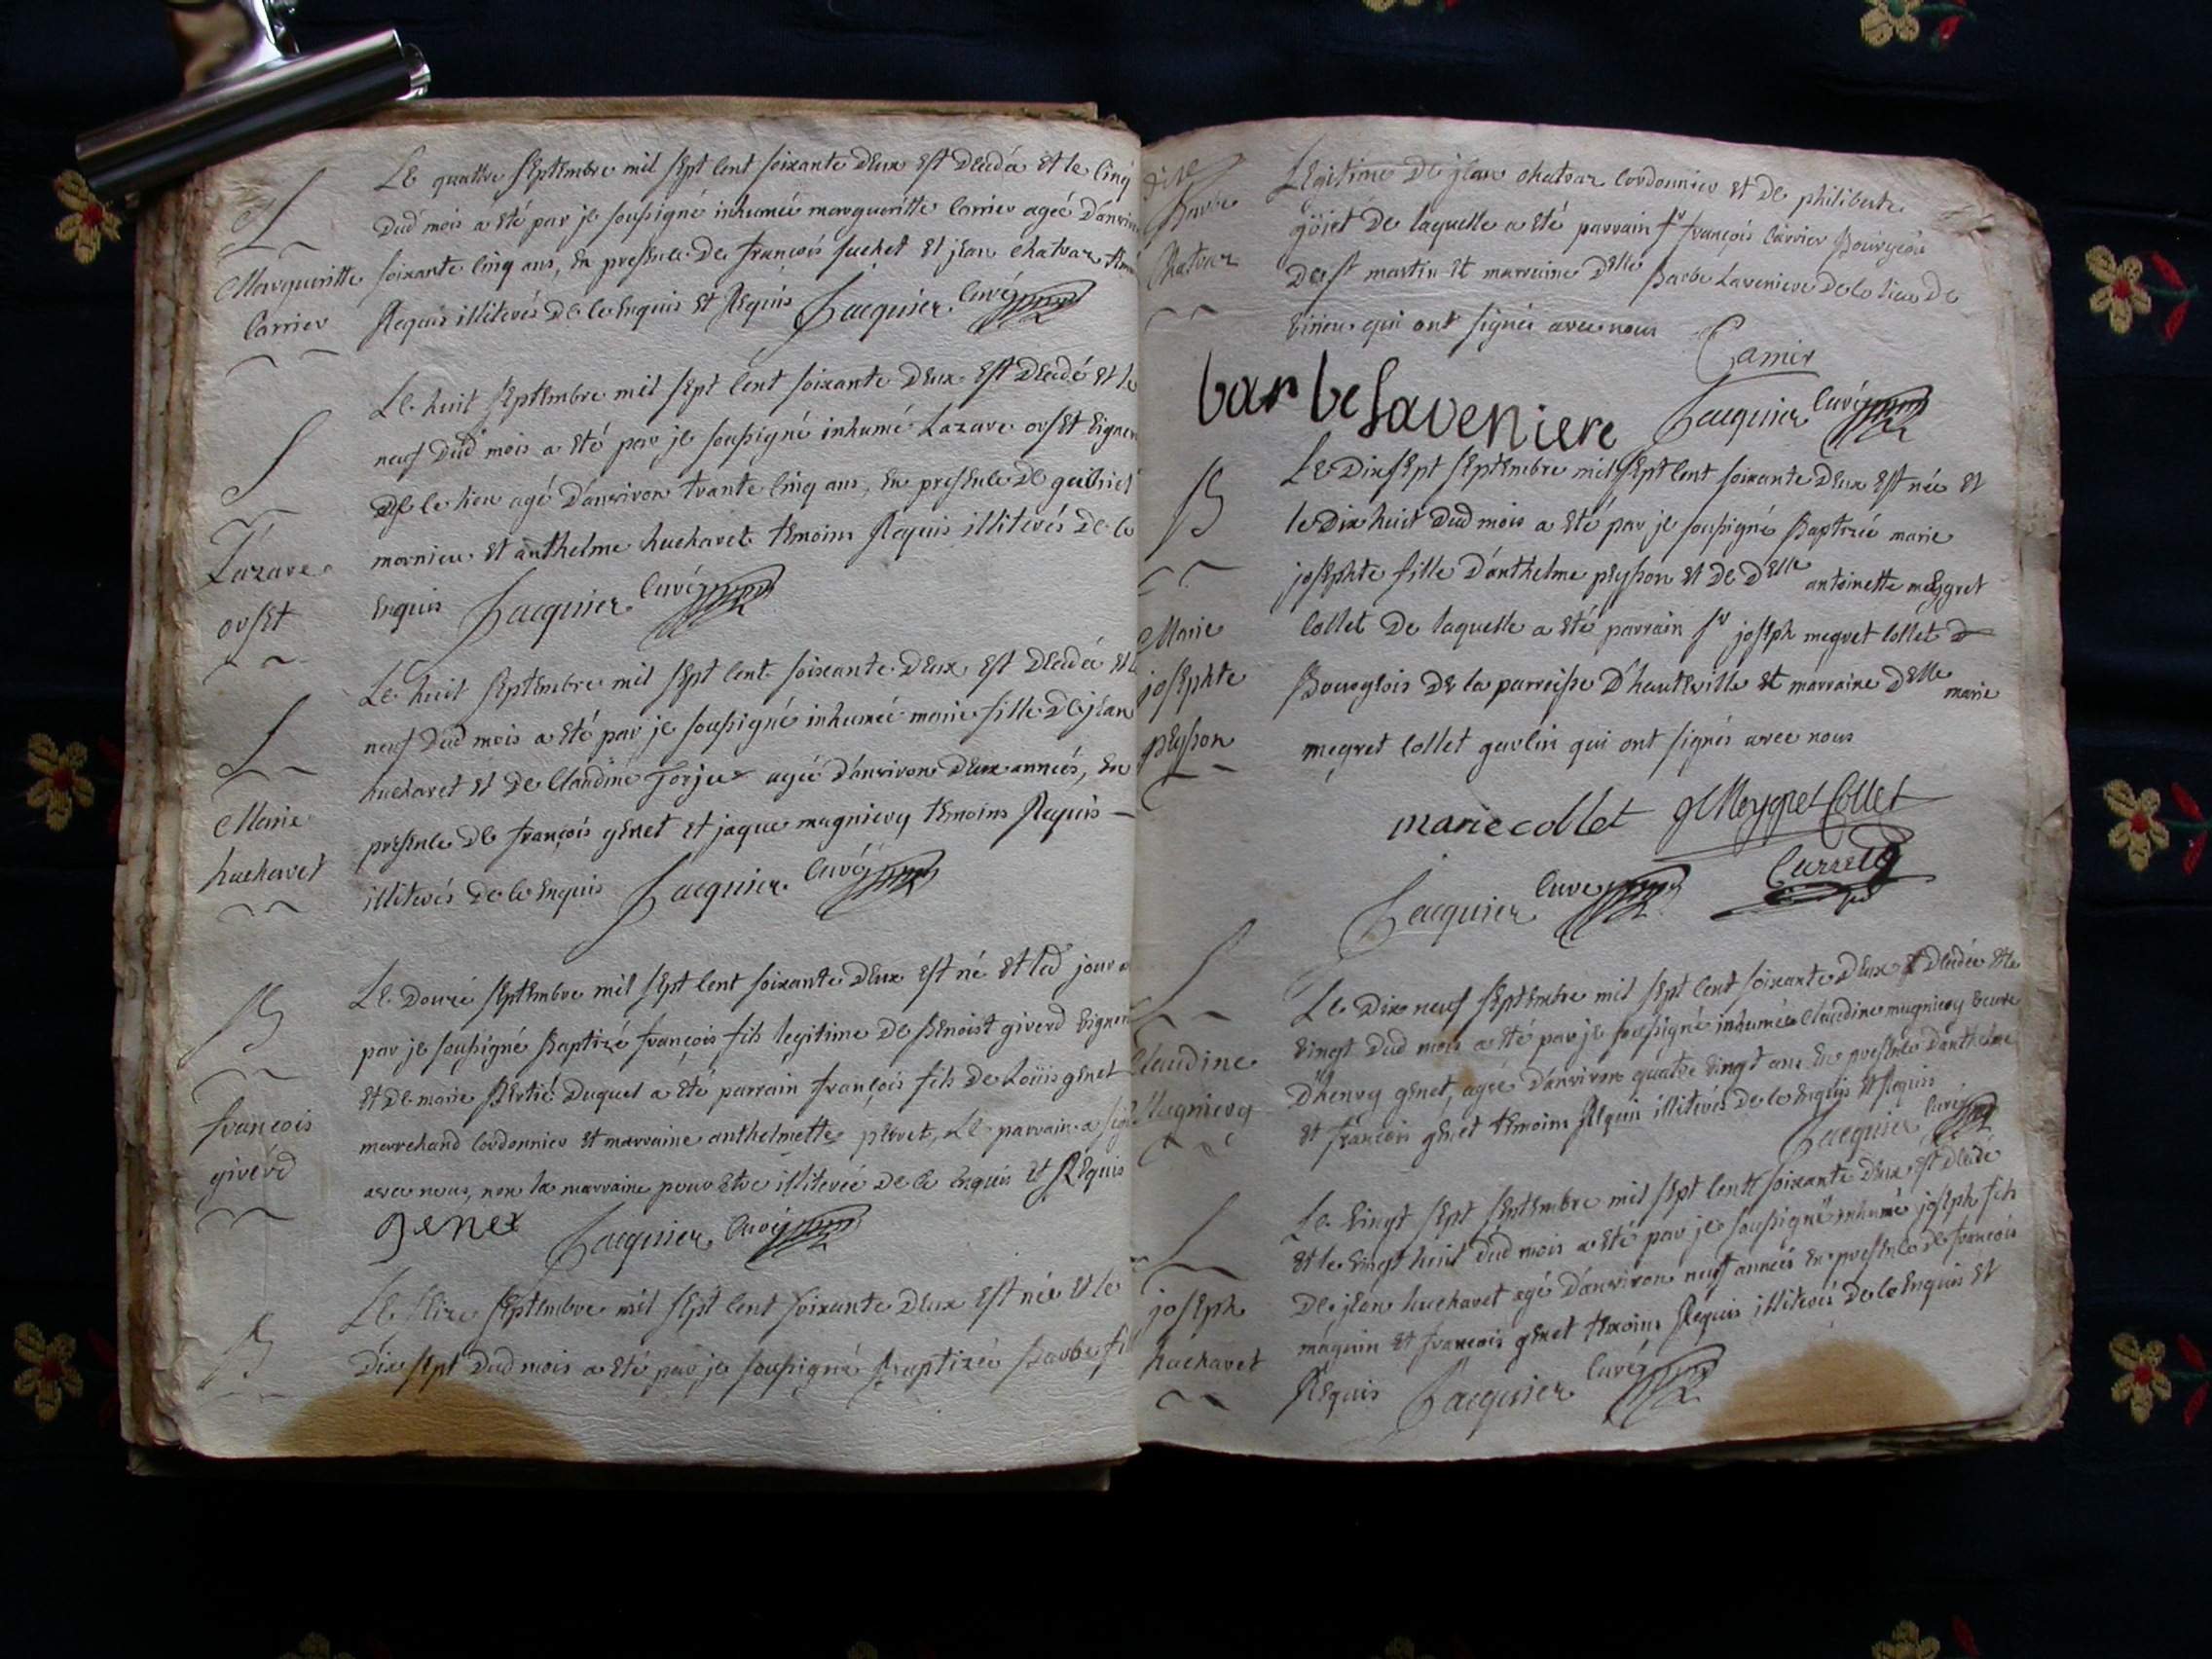 S
Margueritte
Carrier
Le quatre septembre mil sept cent soixante deux est decedée et le cinq
dud mois a eté par je soussigné inhumée margueritte Carrier ageé d'anviron
soixante cinq ans, en presence de françois suchet et jean chatvar
Requis illiterés de ce enquis et Requis Jacquier curé
S
Lazare
orset
Le huit septembre mil sept cent soixante deux est decedé et le
neuf dud mois a eté par je soussigné inhumé Lazare orset vigneron
de ce lieu agé d'anviron trante cinq ans, en presence de
mornieu et anthelme huchavet temoins Requis illiterés de ce
enquis Jacquier curé
S
Marie
huchavet
Le huit septembre mil sept cent soixante deux est decedée et le
neuf dud mois a eté par je soussigné inhumée marie fille de jean
huchavet et de Claudine agée d'anviron deux années, en
presence de françois genet et jaque magnieny temoins Requis
illiterés de ce enquis Jacquier curé
B
francois
giverd
Le douze septembre mil sept cent soixante deux est né et led jour a
par je soussigné Baptizé françois fils legitime de Benoist giverd vigneron
et de marie Bertié duquel a eté parrain françois fils de Loüis genet
marchand Cordonnier et marraine anthelmette pervet, Le parrain a
avec nous, non la marraine pour etre illiterée de ce enquis et Requis
genet Jacquier curé
B
Le seize septembre mil sept cent soixante deux est née et le
dix sept dud mois a eté par je soussigné Baptizée Barbe
Barbe
Chatvar
Legitime de jean chatvar Cordonnier et de philiberte
goiet de laquelle a eté parrain sr françois Carrier Bourgeois
de st martin et marraine delle Barbe Laveniere de ce lieu de
virieu qui ont signés avec nous Carrier
barbe Laveniere Jacquier curé
B
Marie
josephte
peysson
Le dix sept septembre mil sept cent soixante deux est née et
le dix huit dud mois a eté par je soussigné Baptizée marie
josephte fille d'anthelme peysson et de delle antoinette meygret
Collet de laquelle a eté parrain sr joseph megret Collet
Bourgeois de la parroisse d'hauteville et marraine delle marie
megret Collet qui ont signés avec nous
marie collet Meygret Collet
Jacquier curé
S
Claudine
Magnieny
Le dix neuf septembre mil sept cent soixante deux decedée et le
vingt dud mois a eté par je soussigné inhumée Claudine magnieny veuve
D'henry genet, agée d'anviron quatre vingt ans en presence d'anthelme
et françois genet temoins Requis illiterés de ce enquis et Requis
Jacquier curé
S
joseph
huchavet
Le vingt sept septembre mil sept cent soixante deux est decedé
et le vingt huit dud mois a eté par je soussigné inhumé joseph fils
de jean huchavet agé d'anviron neuf années en presence de françois
magnin et françois genet temoins Requis illiterés de ce enquis et
Requis Jacquier curé